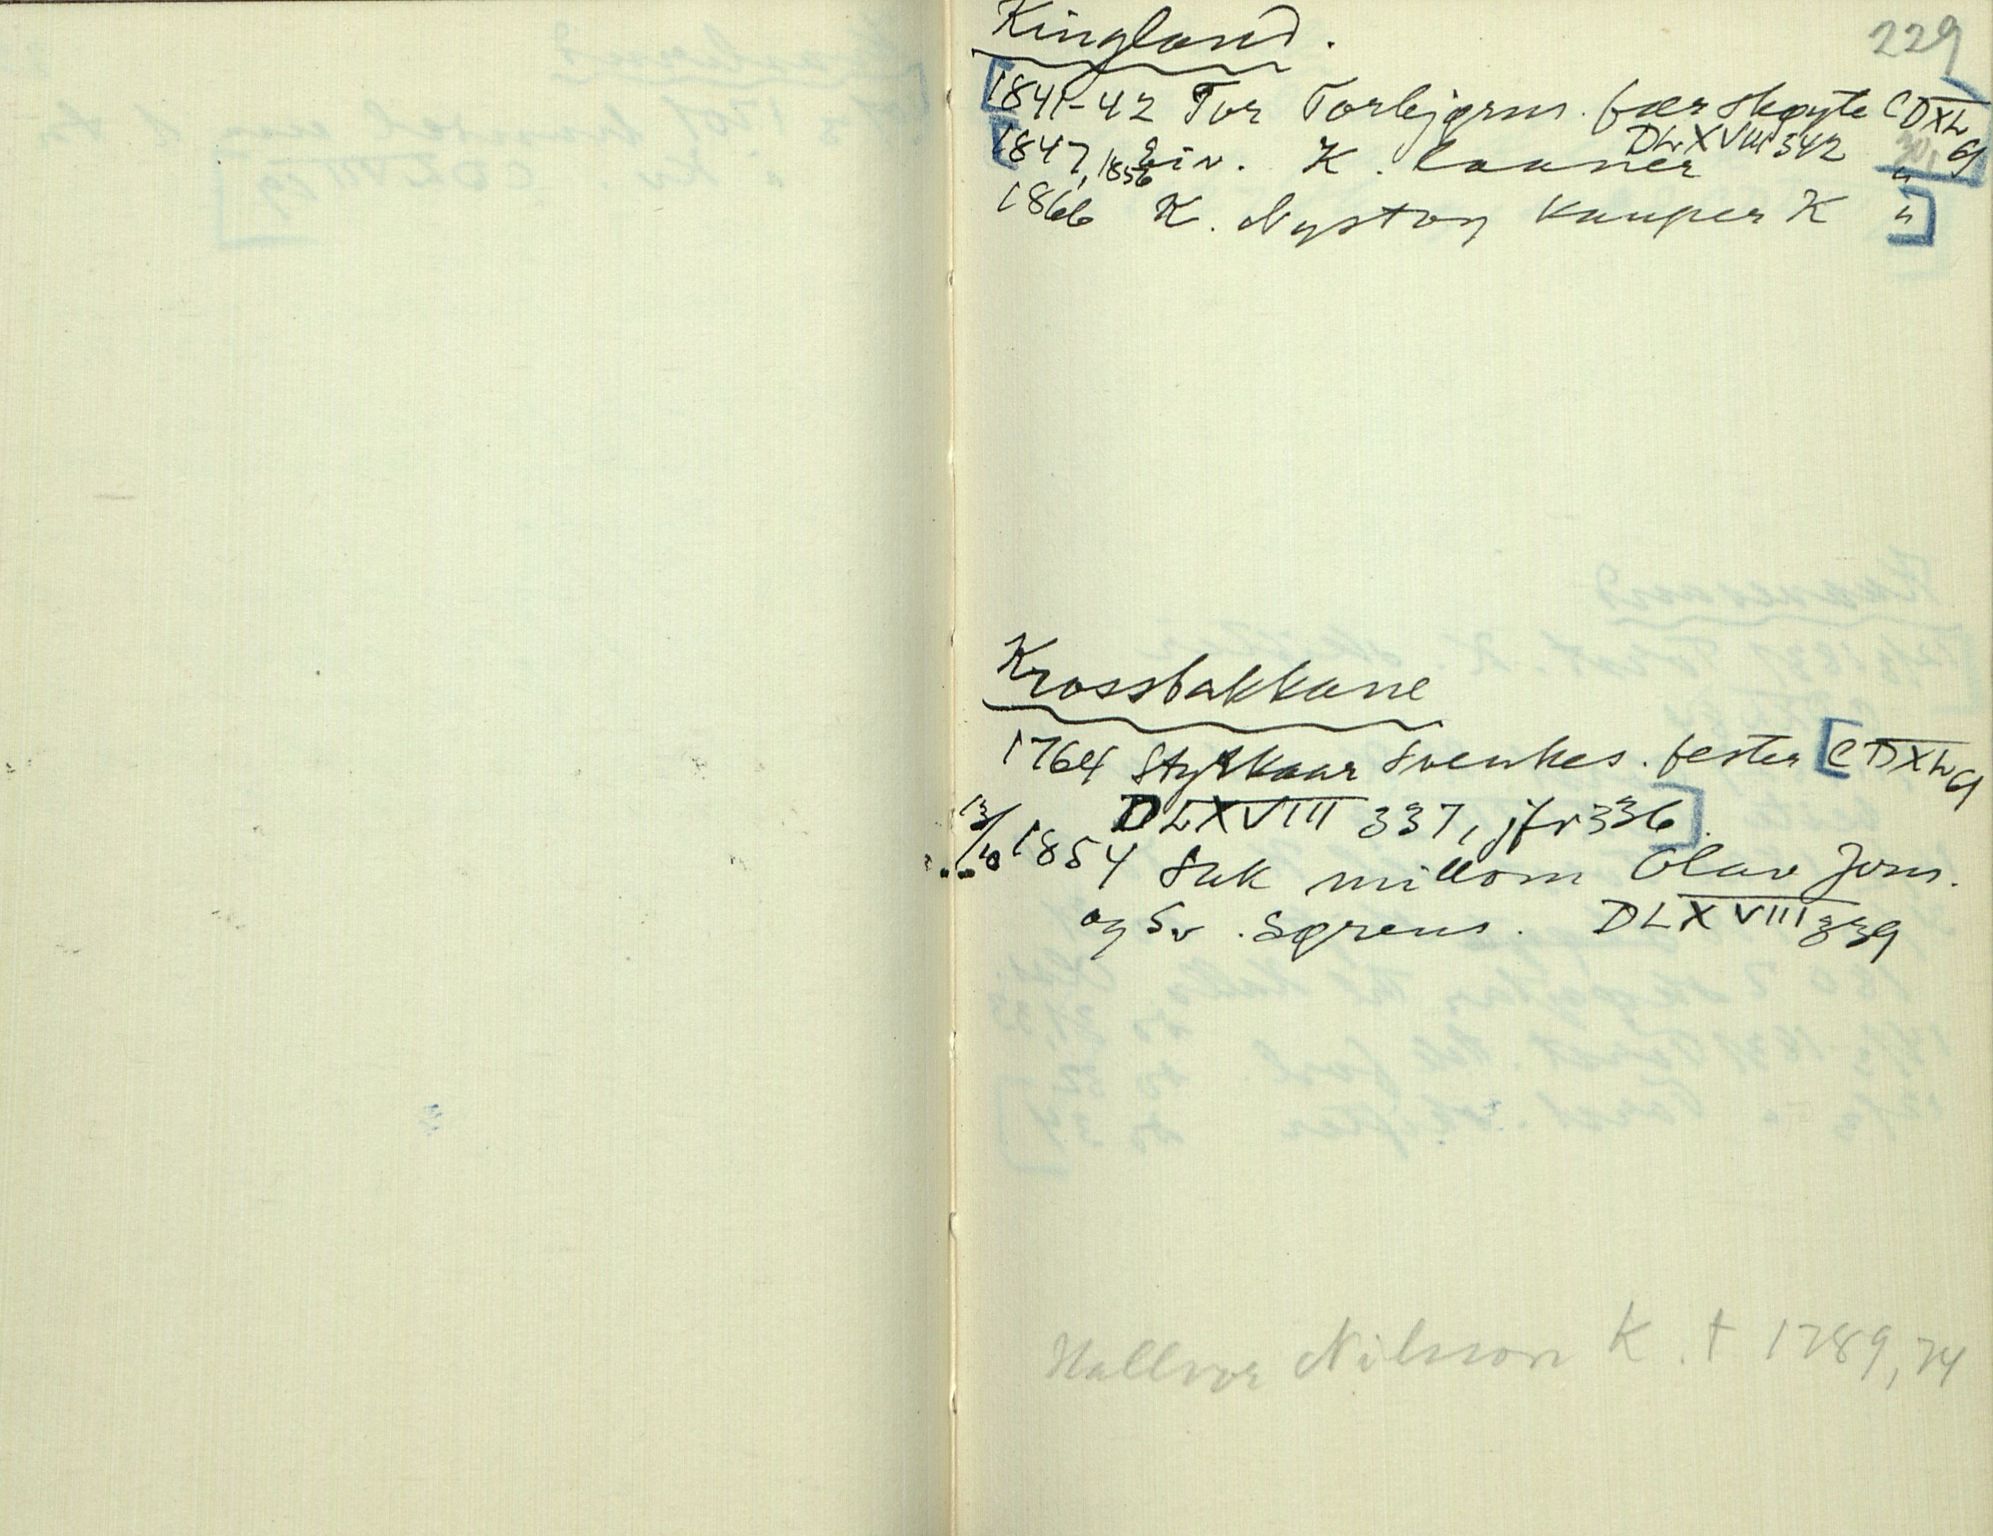 229
Kingland.
[1841-42 Tor Torbjørns. fær skøyte CDXL 9
DLXVIII 342
1847, 1856 Eiv. K. laaner "
1866 K. Nystog kauper K "]
Krossbakkane
1764 Styrkaar Svenkes. fester [CDXL 9
DLXVIII 337, jfr 336].
13/10 1854 Sak millom Olav Jons.
og Sv. Sørens. DLXVIII 339
Hallvor Nilsson K. † 1789, 74